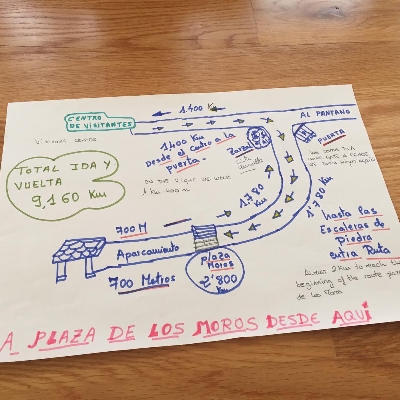 1.400 Km
CENTRO
DE VISITANTES
AL PANTANO
1400 Km
desde el Centro a la
puerta.
Zarzal
PUERTA
TOTAL IDA Y
VUELTA
9,160 Km
1.780 Km
1.780 Km
hasta las
Escaleras de
piedra
entra Ruta
700 M
Aparcamiento
700 Metros
Plaza
Moros
2'800
Km
beginning of the route
de los Moros
A PLAZA DE LOS MOROS DESDE AQUÍ